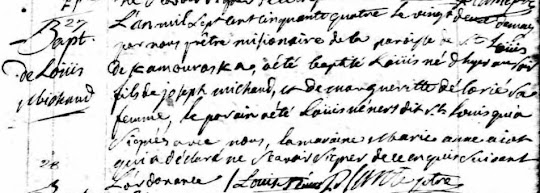 27
Bapt.
de Loüis
Michaud
L'an mil sept cent cinquante quatre le vingt deux de may
par nous prêtre missionaire de la paroisse de St Loüis
de Kamouraska, a eté baptisé Louis né d'hyer au soir
fils de joseph michaud, et de margueritte de lorié sa
femme, le parain a été Louis néners dit St Louis qui a
signés avec nous, la maraine Marie anne aiot
qui a déclaré ne scavoir signer de ce enquis suivant
L'ordonance
28
B
Louis
ptre